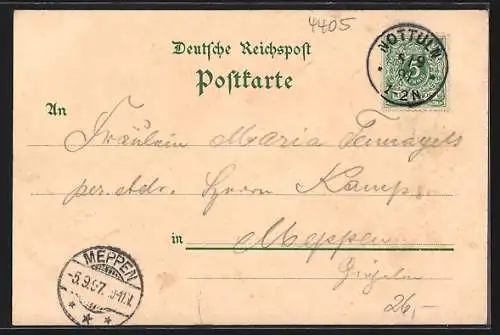 4405
Deutsche Reichspost
Postkarte
NOTTULN
5/9
97
1-2N.
5
An
Fräulein Maria
per Adr. Herrn Kamp
in Meppen
MEPPEN
5.9.97.
26,-